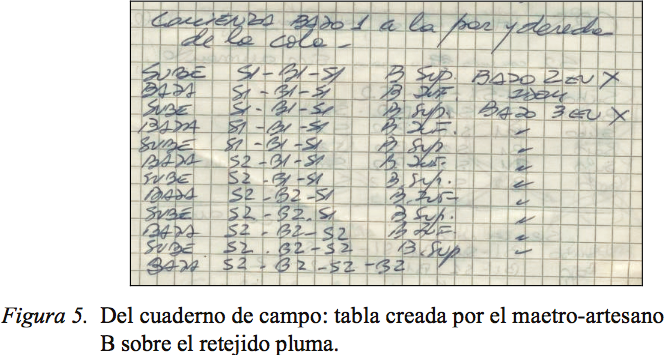 Comienza BAJO 1 a la par y derecha
de la cola -
SUBE S1-B1-S1 B Sup. BAJO 2 EN X
BAJA S1-B1-S1 B INF
SUBE S1-B1-S1 B Sup. BAJO 3 EN X
BAJA S1-B1-S1 B INF. "
SUBE S1-B1-S1 B Sup "
BAJA S2-B1-S1 B INF. "
SUBE S2-B1-S1 B Sup. "
BAJA S2-B2-S1 B.INF- "
SUBE S2-B2.S1 B Sup. "
BAJA S2-B2-S2 B INF "
SUBE S2.B2-S2 B.Sup "
BAJA S2-B2-S2-B2
Figura 5. Del cuaderno de campo: tabla creada por el maetro-artesano
B sobre el retejido pluma.